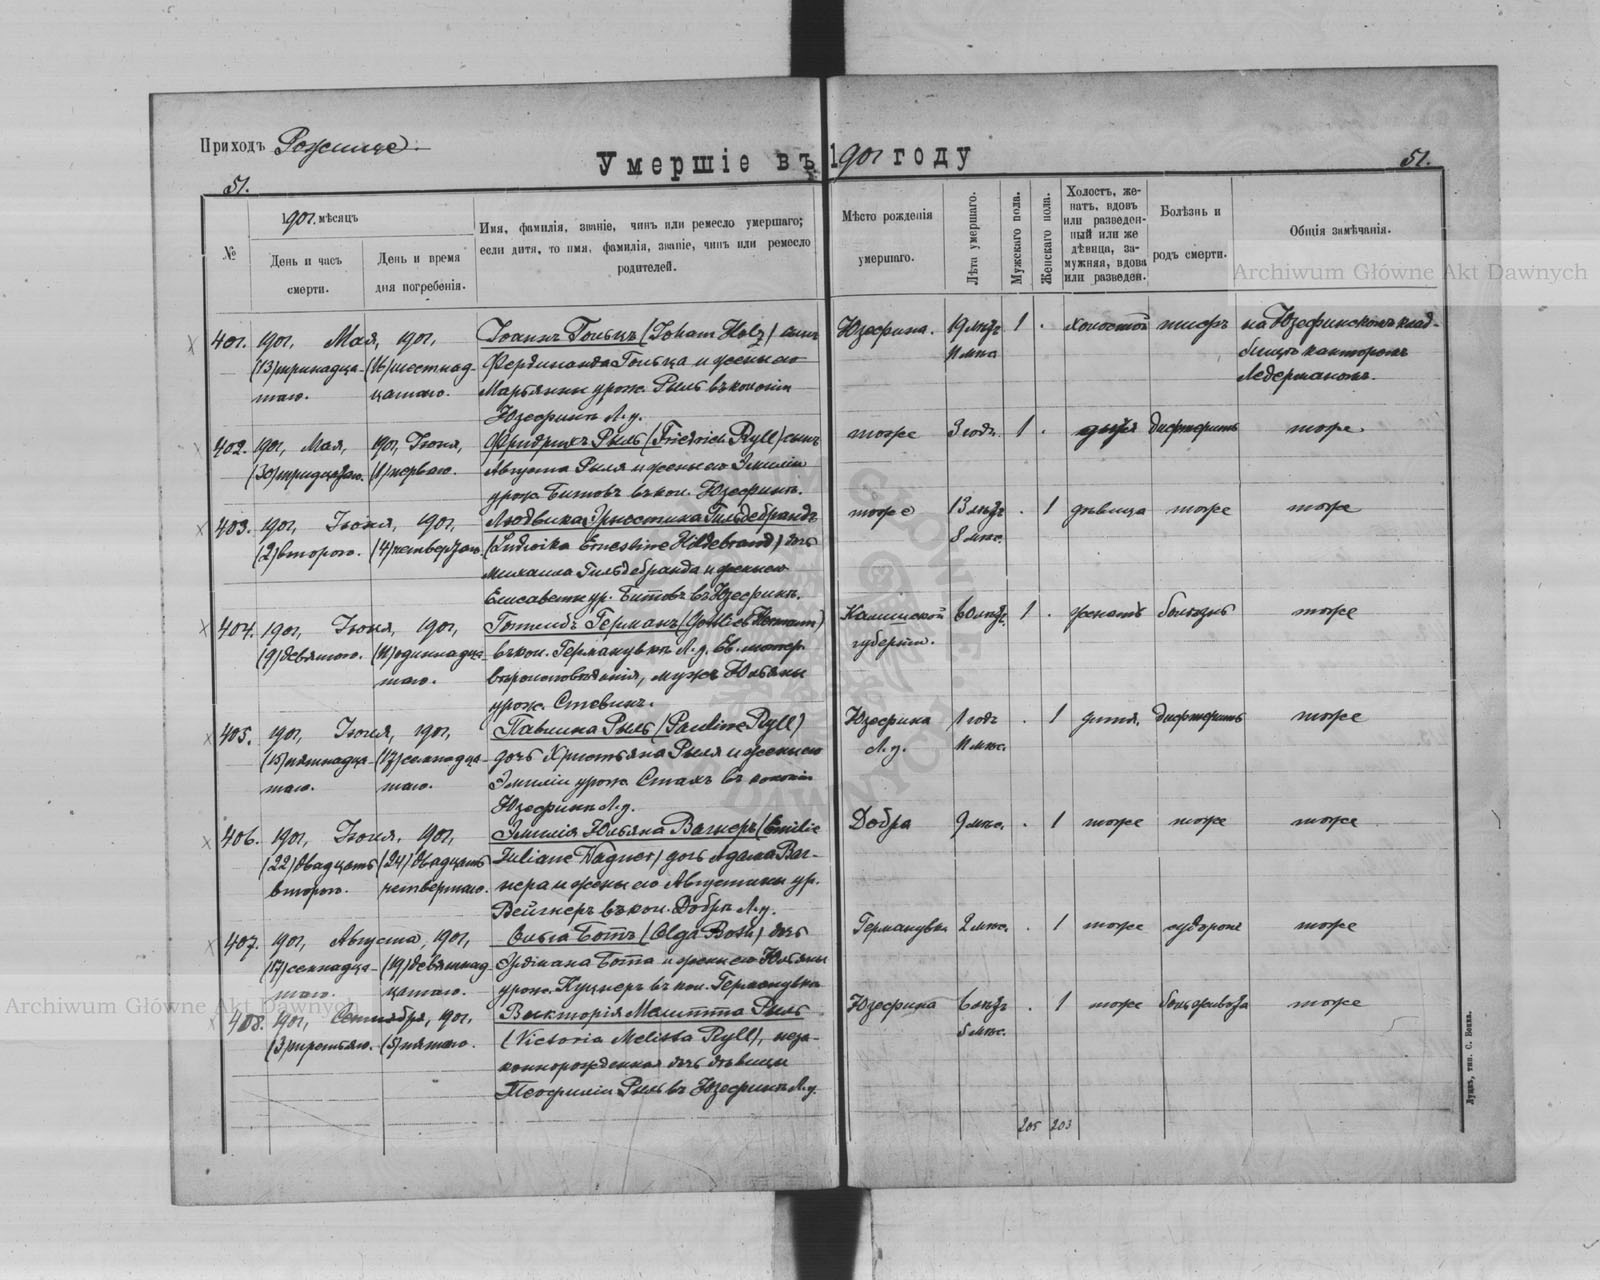 Приходъ Рожище.
Умершіе въ 1901 году
51.
51.
№
1901. мѣсяцъ
День и часъ
смерти.
День и время
дня погребенія.
Имя, фамилія, званіе, чинъ или ремесло умершаго;
если дитя, то имя, фамилія, званіе, чинъ или ремесло
родителей.
Мѣсто рожденія
умершаго.
Лѣта умершаго.
Мужскаго пола.
Женскаго пола.
Холостъ, же-
натъ, вдовъ
или разведен-
ный или же
дѣвица, за-
мужняя, вдова
или разведен.
Болѣзнь и
родъ смерти.
Общія замѣчанія.
Archiwum Główne Akt Dawnych
401. 1901, Мая, 1901, Іоаннъ Гольцъ (Joham Holz) сынъ Юзефина. 19 лѣтъ 1 . холостой тифъ на Юзефинскомъ клад-
(13) тринадца- (16) шестнад- Фердинанда Гольца и жены его 11 мѣс. бищѣ канторомъ
таго. цатаго. Марьянны урож. Рыль въ колоніи Ледерманомъ.
Юзефинъ Л. у.
402. 1901, Мая, 1901, Іюня, Фридрихъ Рыль (Friedrich Ryll) сынъ тоже 3 года 1 . дитя дифтеритъ тоже
(30) тридцатаго. (1) перваго. Августа Рыля и жены его Эмиліи
урож. Битовъ въ кол. Юзефинъ.
403. 1901, Іюня, 1901, Людвика Эрнестина Гильдебрандъ тоже 13 лѣтъ . 1 дѣвица тоже тоже
(2) второго. (4) четвертаго. (Ludwika Ernestine Hildebrand) дочь 8 мѣс.
Михаила Гильдебранда и жены его
Елисаветы ур. Битовъ въ Юзефинъ.
404. 1901, Іюня, 1901, Готлибъ Германъ (Gottlieb Hermann) Калишской 60 лѣтъ. 1 . женатъ болѣзнь тоже
(9) девятаго. (11) одиннадца- въ кол. Германувкѣ Л. у. Ев. лютер. губерніи.
таго. вѣроисповѣданія, мужъ Юльяны
урож. Стевинъ.
405. 1901, Іюня, 1901, Павлина Рыль (Pauline Ryll) Юзефина 1 годъ . 1 дитя, дифтеритъ тоже
(15) пятнадца- (17) семнадца- дочь Христьяна Рыля и жены его Л. у. 11 мѣс.
таго. таго. Эмиліи урож. Стахъ въ колоніи
Юзефинъ Л. у.
406. 1901, Іюня, 1901, Эмилія Юльяна Вагнеръ (Emilie Добра 9 мѣс. . 1 тоже тоже тоже
(22) двадцать (24) двадцать Juliane Wagner) дочь Адама Ваг-
второго. четвертаго. нера и жены его Августины ур.
Вейгнеръ въ кол. Добра Л. у.
407. 1901, Августа, 1901, Ольга Ботъ (Olga Both) дочь Германувки 2 мѣс. . 1 тоже судороги тоже
(17) семнадца- (19) девятнад- Эрдмана Бота и жены его Юльяны
таго. цатаго. урож. Куцнеръ въ кол. Германувкѣ
Archiwum Główne Akt Dawnych
408. 1901, Сентября, 1901, Викторія Мелитта Рыль Юзефина 6 лѣтъ . 1 тоже боль живота тоже
(3) третьяго. (5) пятаго. (Victoria Melitta Ryll), неза- 5 мѣс.
коннорожденная дочь дѣвицы
Теофиліи Рыль въ Юзефинѣ Л. у.
205 203
Луцкъ, тип. С. Бокка.